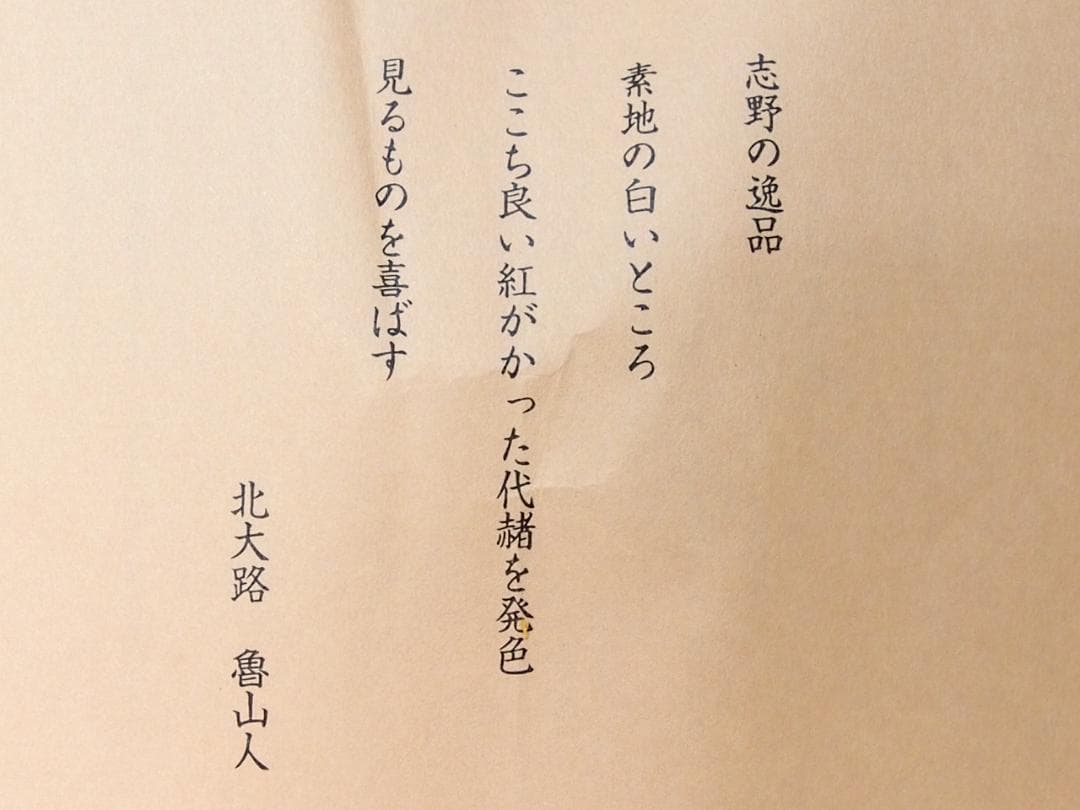 志野の逸品
素地の白いところ
ここち良い紅がかった代赭を発色
見るものを喜ばす
北大路　魯山人